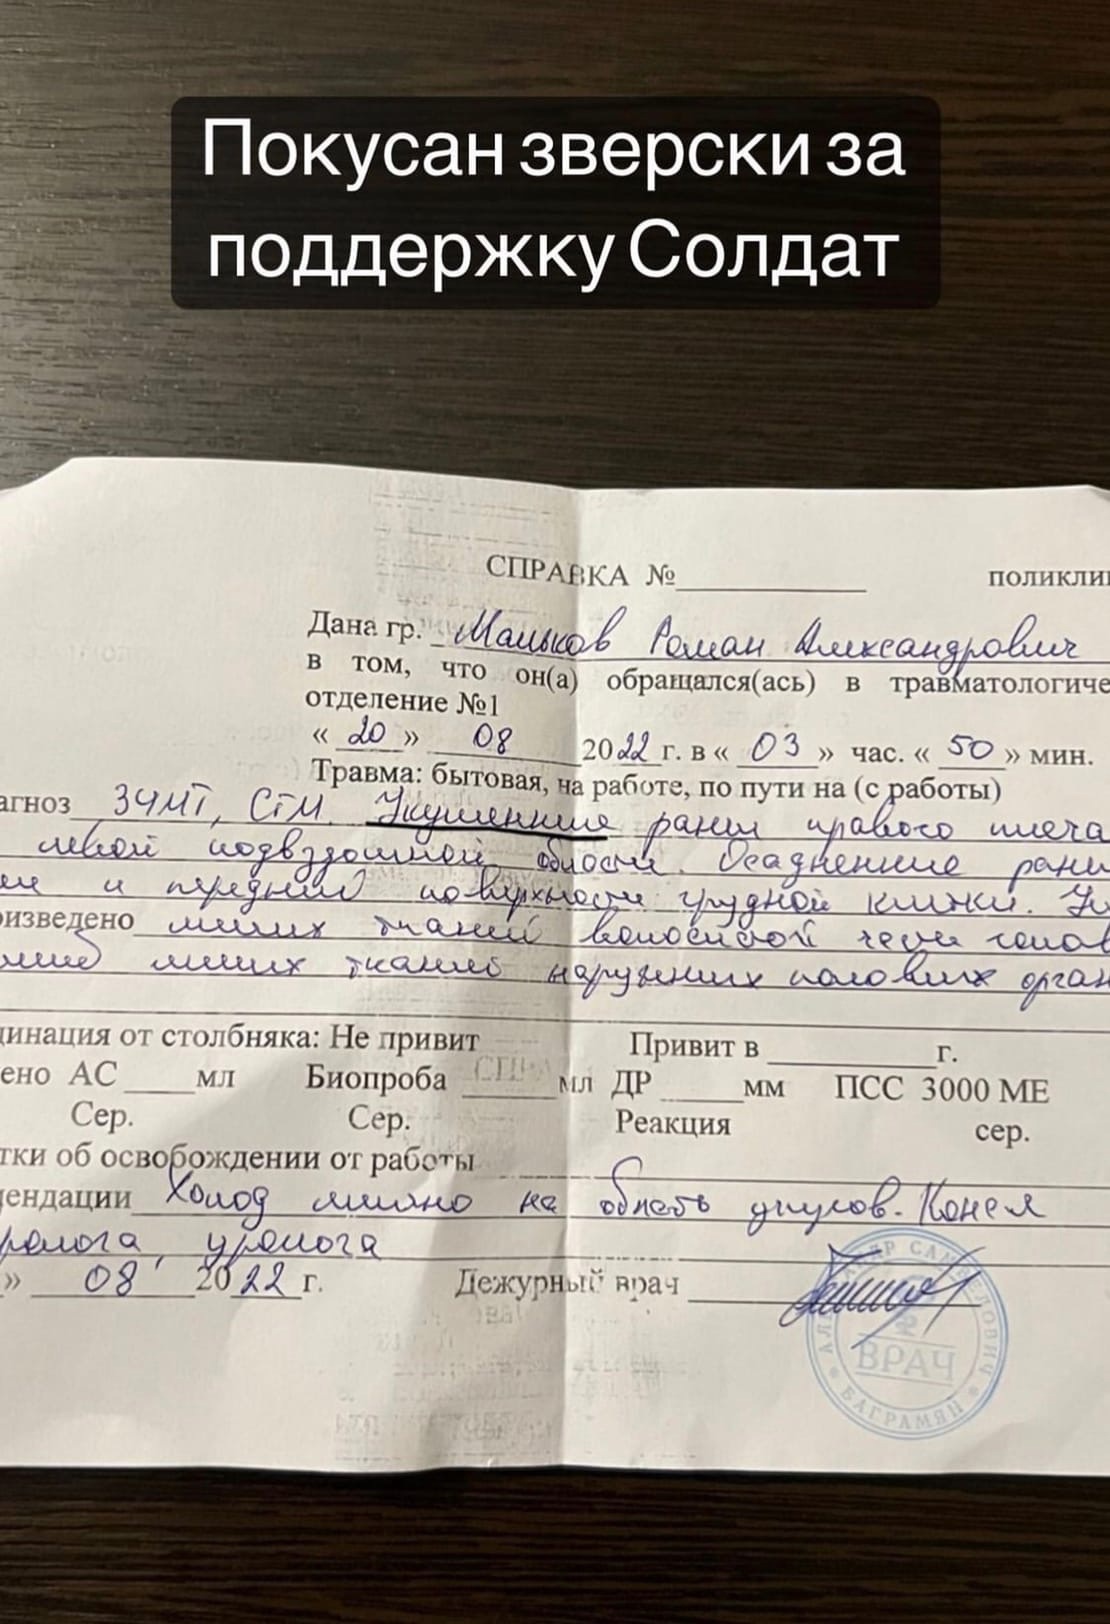 Покусан зверски за
поддержку Солдат
СПРАВКА № поликлин
Дана гр. Маньков Роман Александрович
в том, что он(а) обращался(ась) в травматологиче
отделение №1
« 20 » 08 2022 г. в « 03 » час. « 50 » мин.
Травма: бытовая, на работе, по пути на (с работы)
агноз ЗЧМТ, СГМ. Укушенные раны правого плеча
левой подвздошной области. Осадненные раны
и передней поверхности грудной клетки. Уш
оизведено мягких тканей волосистой части голов
мягких тканей наружных половых орган
цинация от столбняка: Не привит Привит в г.
ено АС мл Биопроба мл ДР мм ПСС 3000 МЕ
Сер. Сер. Реакция сер.
тки об освобождении от работы
ендации Холод местно на область укусов. Конс-я
ролога, уролога
» 08 2022 г. Дежурный врач
ВРАЧ
БАГРАМЯН